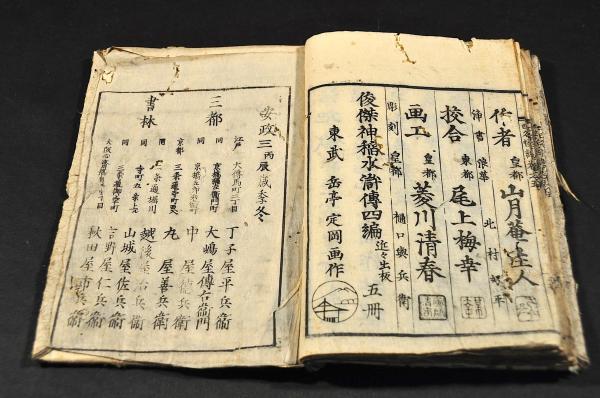 作者 皇都 山月菴主人
浄書 浪華 北村
校合 東都 尾上梅幸
画工 皇都 菱川清春
彫刻 皇都 樋口與兵衛
俊傑神稲水滸傳四編 近々出板 五冊
東武 岳亭定岡画作
安政三丙辰歳季冬
三都
書林
江戸 大傳馬町二丁目 丁子屋平兵衛
同 大嶋屋傳右衛門
同 中屋徳兵衛
京都 三条通寺町 丸屋善兵衛
同 二条通堀川 越後屋治兵衛
同 寺町 山城屋佐兵衛
同 三条通御幸町 吉野屋仁兵衛
大阪心斎橋 秋田屋市兵衛